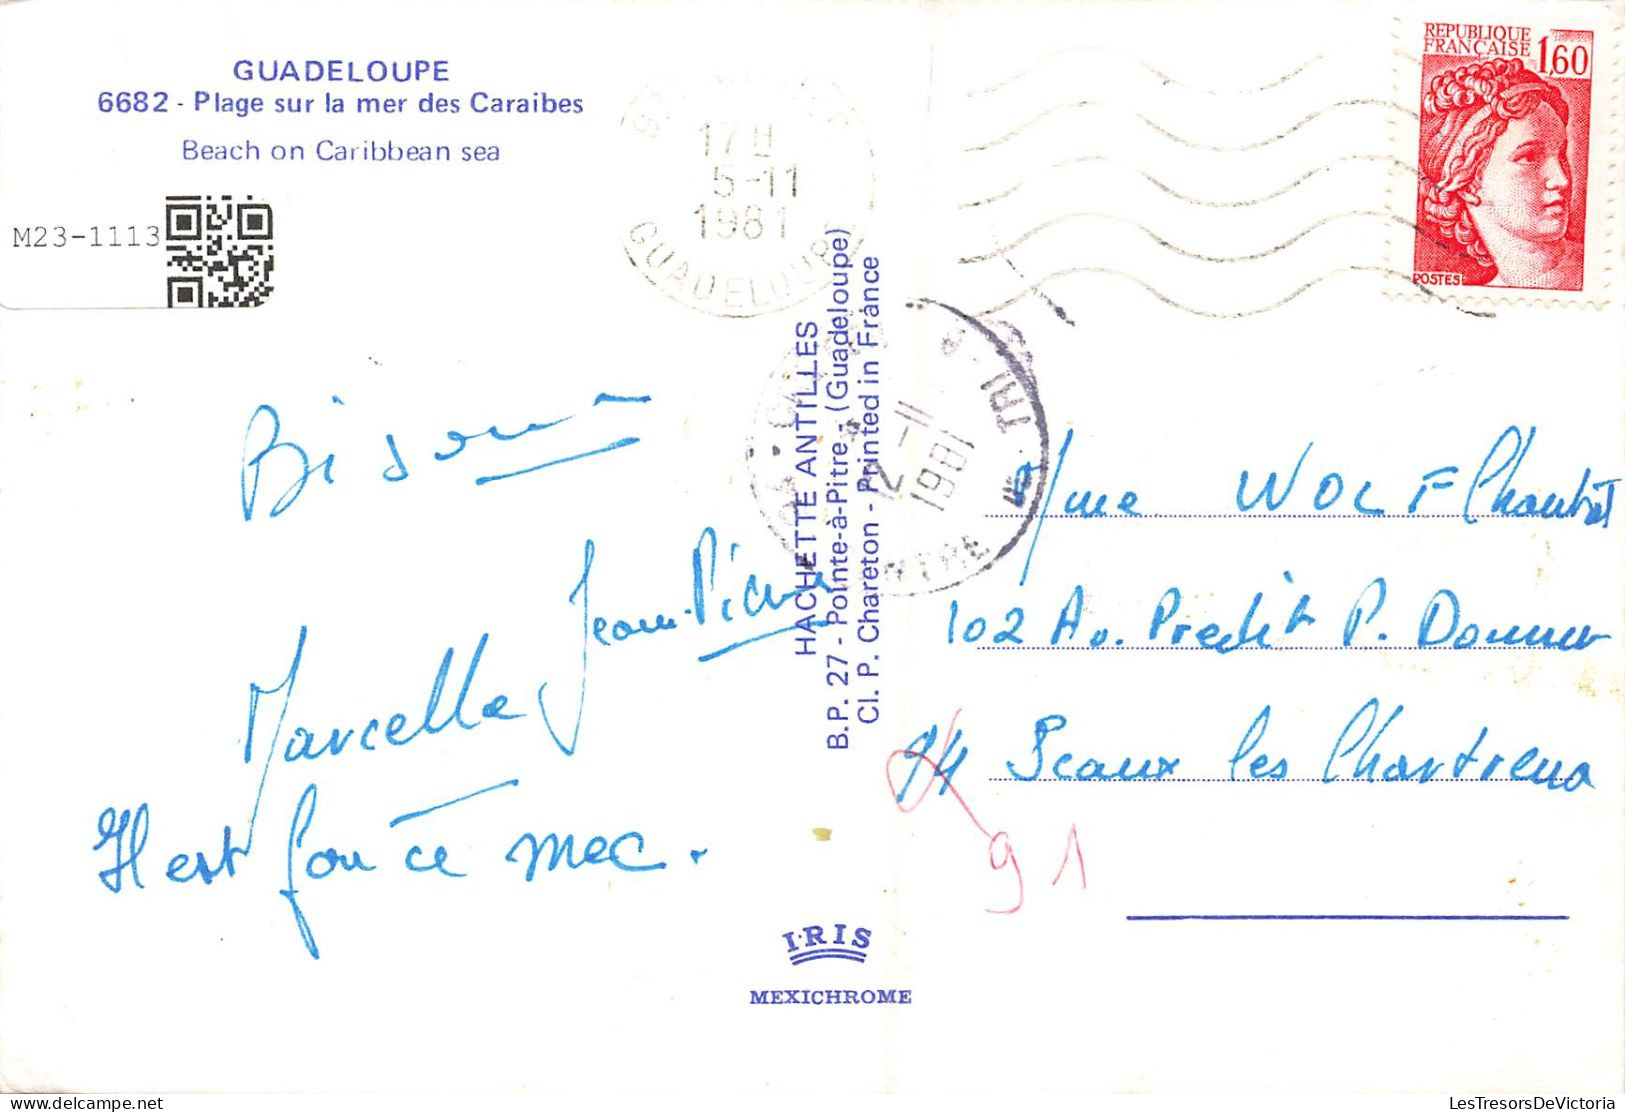 GUADELOUPE
6682 - Plage sur la mer des Caraibes
Beach on Caribbean sea
M23-1113
17 H
5-11
1981
GUADELOUPE
REPUBLIQUE
FRANÇAISE 1,60
POSTES
TRI
12-11
1981
HACHETTE ANTILLES
B.P. 27 - Pointe-à-Pitre - (Guadeloupe)
Cl. P. Chareton - Printed in France
Jean-Pierre
Marcelle
Il est fou ce mec.
Mme WOLF
102 Av. P. Doumer
94 Sceaux les Chartreux
91
IRIS
MEXICHROME
LesTresorsDeVictoria
© delcampe.net